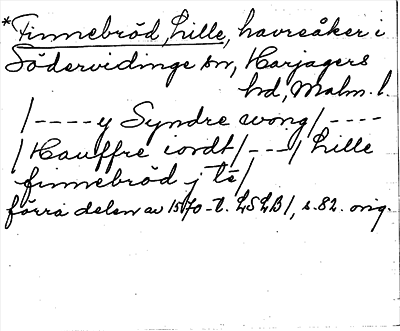 *Finnebröd, Lille, havreåker i
Södervidinge sn, Harjagers
hd, Malm. l.
/----y Syndre wong/----
/Hauffre iordt/---/Lille
finnebröd j te/
förra delen av 1570-t. LSLB1, s.82. orig.